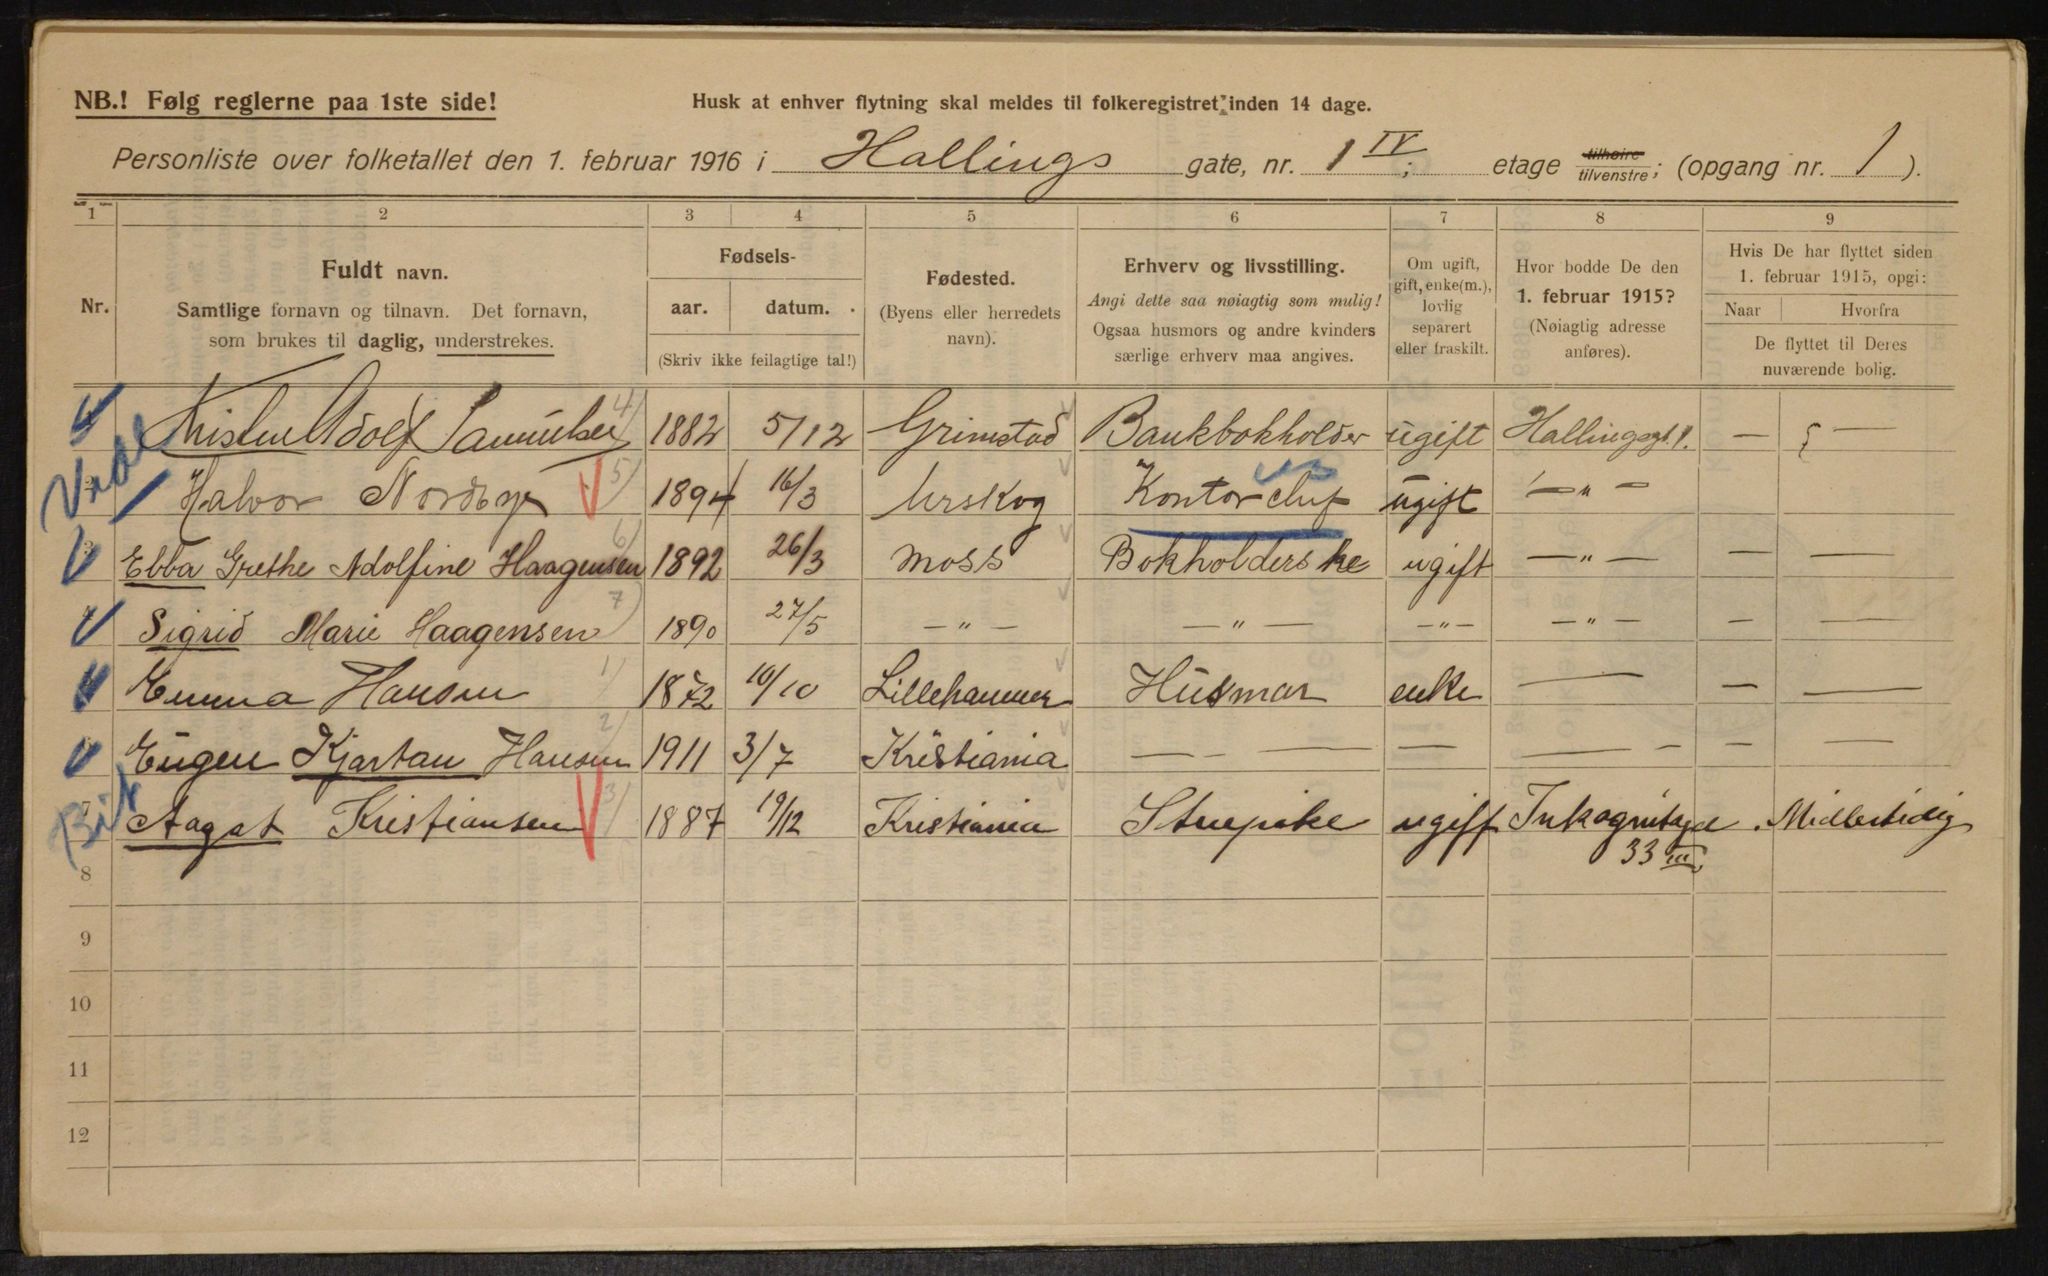 NB.! Følg reglerne paa 1ste side!
Husk at enhver flytning skal meldes til folkeregistret inden 14 dage.
Personliste over folketallet den 1. februar 1916 i Hallings gate, nr. 1 IV; etage tilhøire tilvenstre; (opgang nr. 1).
1 2 3 4 5 6 7 8 9
Nr.
Fuldt navn.
Samtlige fornavn og tilnavn. Det fornavn,
som brukes til daglig, understrekes.
Fødsels-
aar. datum.
(Skriv ikke feilagtige tal!)
Fødested.
(Byens eller herredets
navn).
Erhverv og livsstilling.
Angi dette saa nøiagtig som mulig!
Ogsaa husmors og andre kvinders
særlige erhverv maa angives.
Om ugift,
gift, enke(m.),
lovlig
separert
eller fraskilt.
Hvor bodde De den
1. februar 1915?
(Nøiagtig adresse
anføres).
Hvis De har flyttet siden
1. februar 1915, opgi:
Naar Hvorfra
De flyttet til Deres
nuværende bolig.
Kristen Adolf Samuelsen 4) 1882 5/12 Grimstad Bankbokholder ugift Hallingsgt. 1. — —
Halvor Nordbye 5) 1894 16/3 Urskog Kontorchef ugift —"—
Ebba Grethe Adolfine Haagensen 6) 1892 26/3 Moss Bokholderske ugift —"— — —
Sigrid Marie Haagensen 7) 1890 27/5 —"— —"— —"— —"— — —
Emma Hansen 1) 1872 10/10 Lillehammer Husmor enke — — —
Eugen Kjartan Hansen 2) 1911 3/7 Kristiania — — — — — — —
7 Aagot Kristiansen 3) 1887 19/12 Kristiania Stuepike ugift Inkognitogt. Midlertidig
33 III
8
9
10
11
12